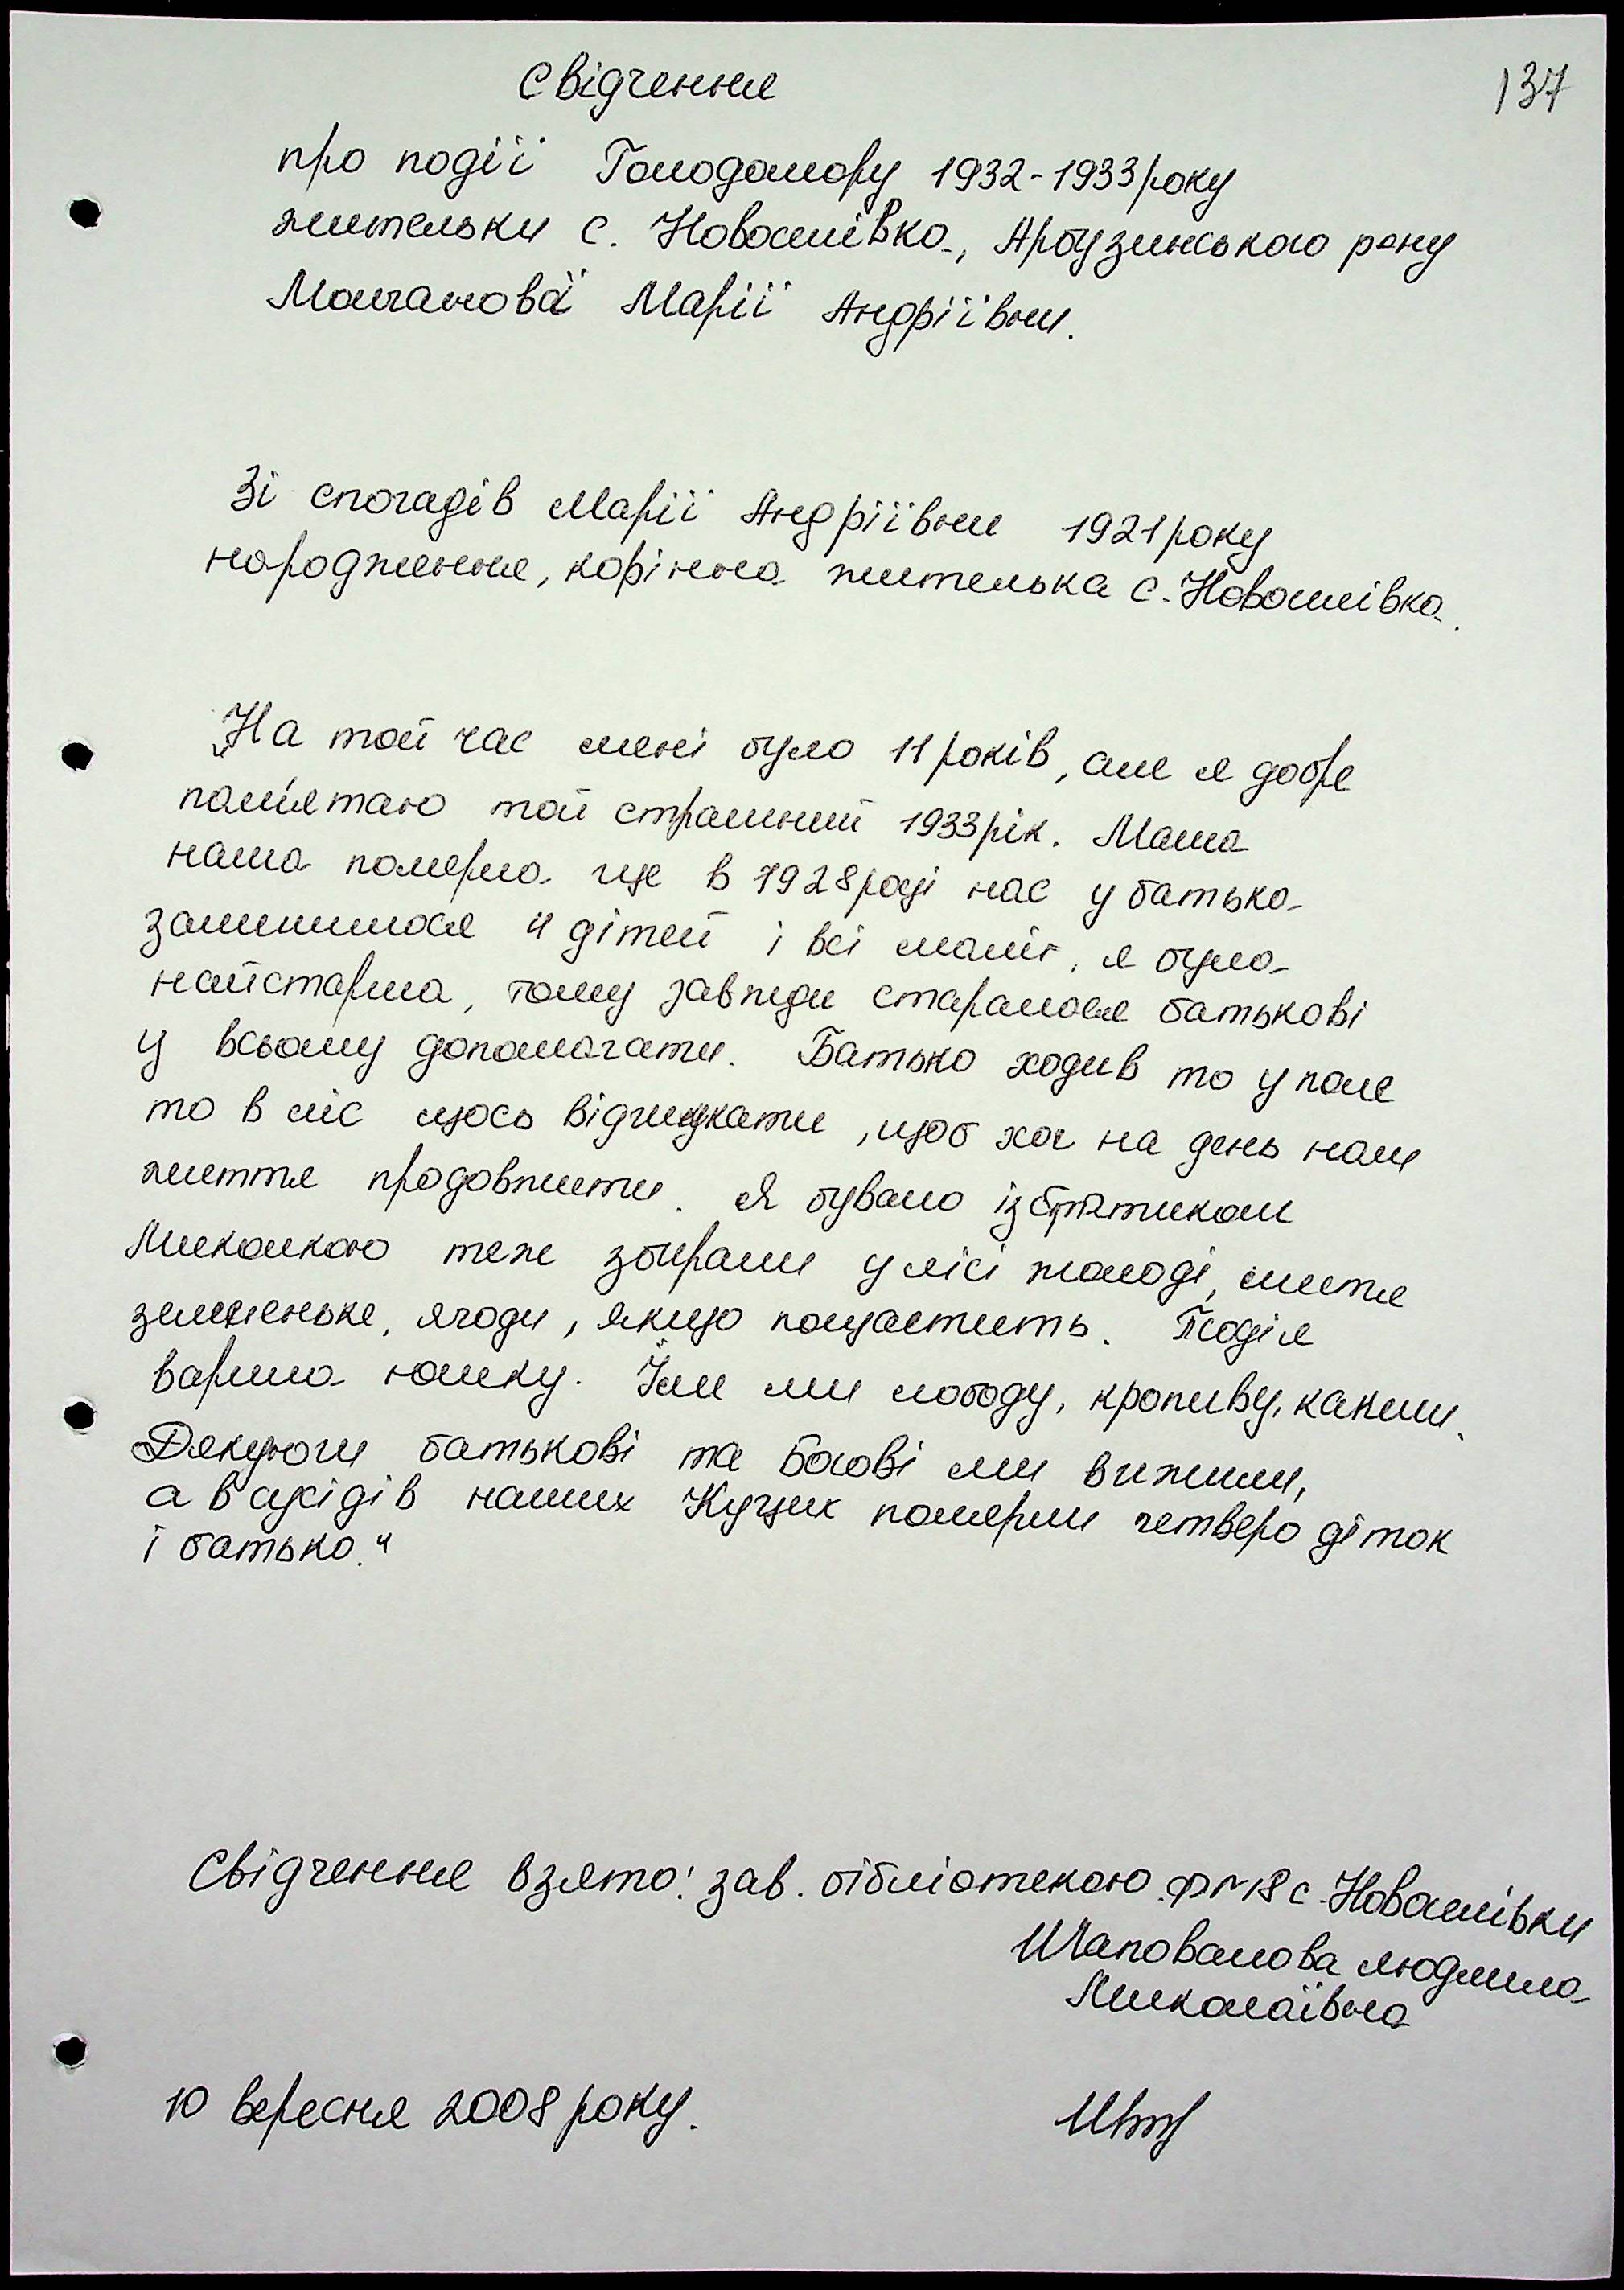 137
Свідчення
про події Голодомору 1932-1933 року
жительки с. Новоселівка, Арбузинського р-ну
Молчанової Марії Андріївни.
Зі спогадів Марії Андріївни 1921 року
народження, корінна жителька с. Новоселівка.
„На той час мені було 11 років, але я добре
пам'ятаю той страшний 1933 рік. Мама
наша померла ще в 1928 році нас у батька
залишилося 4 дітей і всі малі, я була
найстарша, тому завжди старалася батькові
у всьому допомагати. Батько ходив то у поле
то в ліс щось відшукати, щоб хоч на день нам
життя продовжити. Я бувало із братиком
Миколкою теж збирали у лісі жолоді, листя
зелененьке, ягоди, якщо пощастить. Тоді я
варила юшку. Їли ми лободу, кропиву, калачи.
Дякуючи батькові та Богові ми вижили,
а в сусідів наших Куцих померли четверо діток
і батько."
Свідчення взято: зав. бібліотекою ф №18 с. Новоселівки
Шаповалова Людмила
Миколаївна
10 вересня 2008 року.